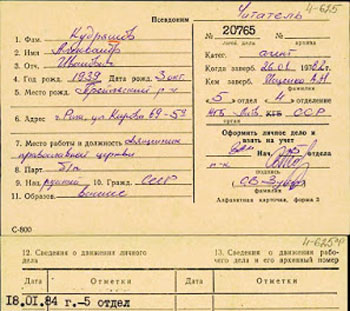 Псевдоним Читатель 4-625
1. Фам. Кудряшов
2. Имя Александр
3. Отч. Иванович
4. Год рожд. 1939 Дата рожд. 3 окт.
5. Место рожд. р-н
6. Адрес г. Рига, ул. Кирова 69-59
7. Место работы и должность священник
православной церкви
8. Парт. б/п
9. Нац. русский 10. Гражд. СССР
11. Образов. высшее
С-800
№ 20765
личн. дела архивн.
Катег. агент
Когда заверб. 26.01 1982 г.
Кем заверб. Ищенко В.Н
фамилия
5 отдел 4 отделение
КГБ Лат. ССР
орган
Оформить личное дело и
взять на учет
Нач. 5 отдела
п-к
подпись
фамилия
Алфавитная карточка, форма 3
4-625
12. Сведения о движении личного
дела
13. Сведения о движении рабо-
чего дела и его архивный номер
Дата Отметки Дата Отметки
18.01.84 г.-5 отдел